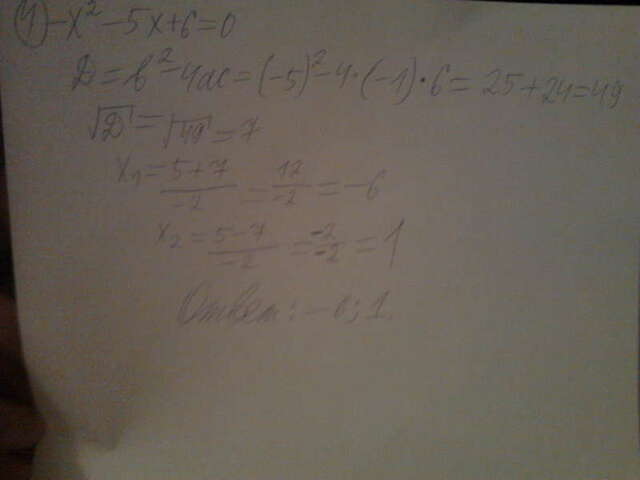 4) -x² - 5x + 6 = 0
D = b² - 4ac = (-5)² - 4 · (-1) · 6 = 25 + 24 = 49
√D = √49 = 7
x₁ = (5+7)/(-2) = 12/(-2) = -6
x₂ = (5-7)/(-2) = -2/-2 = 1
Ответ: -6; 1.